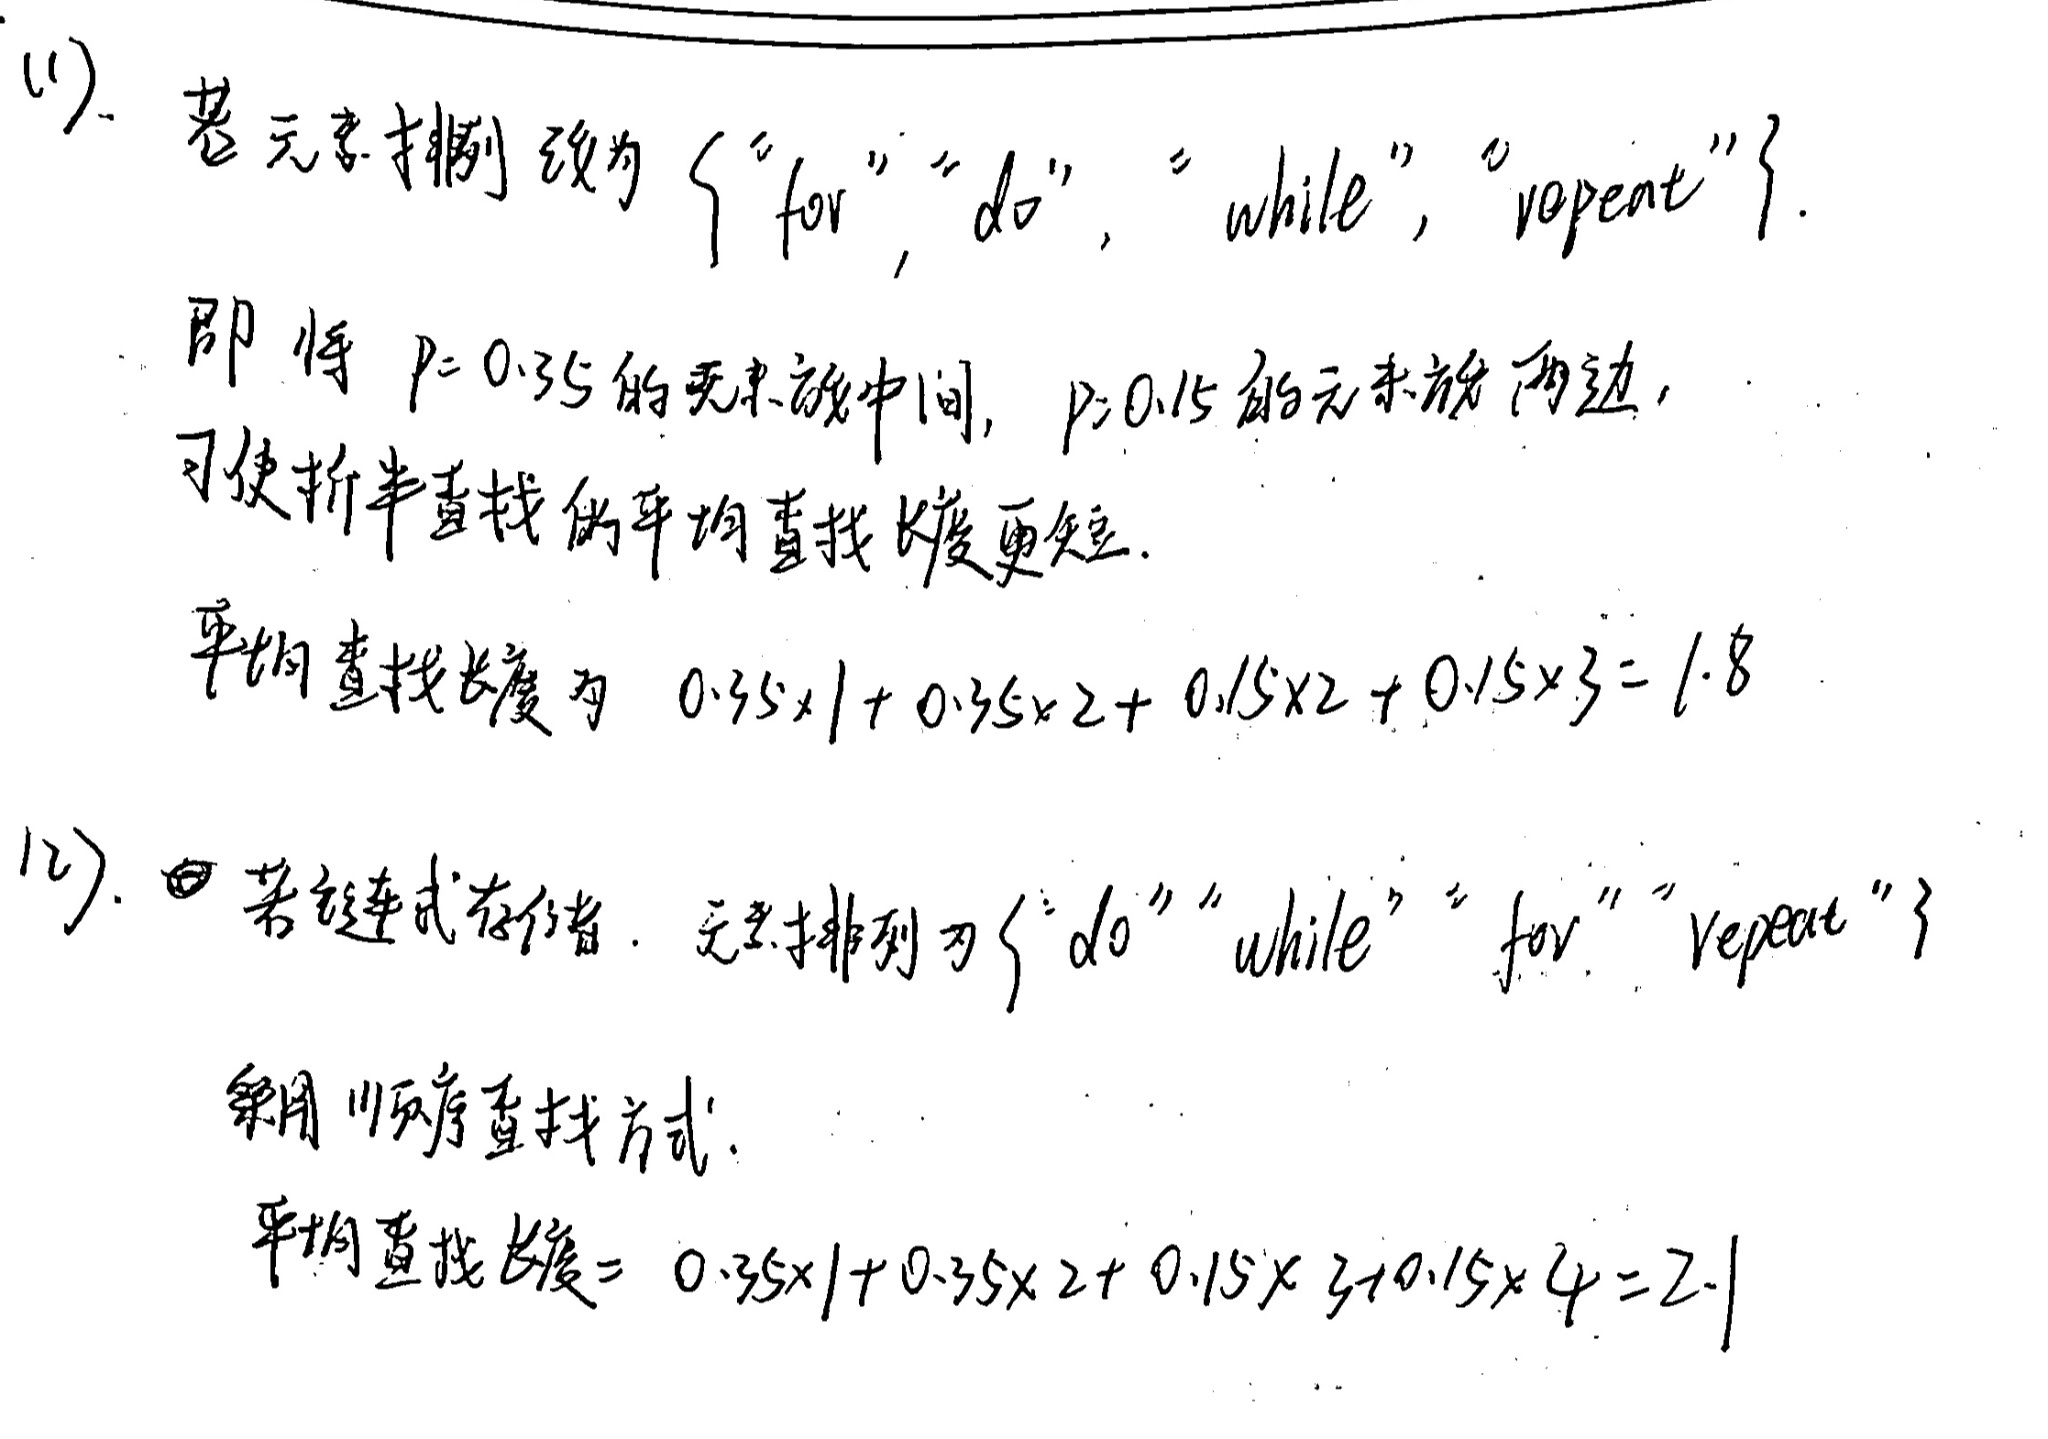 (1). 若元素排列改为 {"for", "do", "while", "repeat"}.
即将 P=0.35的元素放中间, P=0.15的元素放两边,
可使折半查找的平均查找长度更短.
平均查找长度为 0.35×1+0.35×2+0.15×2+0.15×3=1.8
(2). 若链式存储. 元素排列为{"do" "while" "for" "repeat"}
采用顺序查找方式.
平均查找长度= 0.35×1+0.35×2+0.15×3+0.15×4=2.1